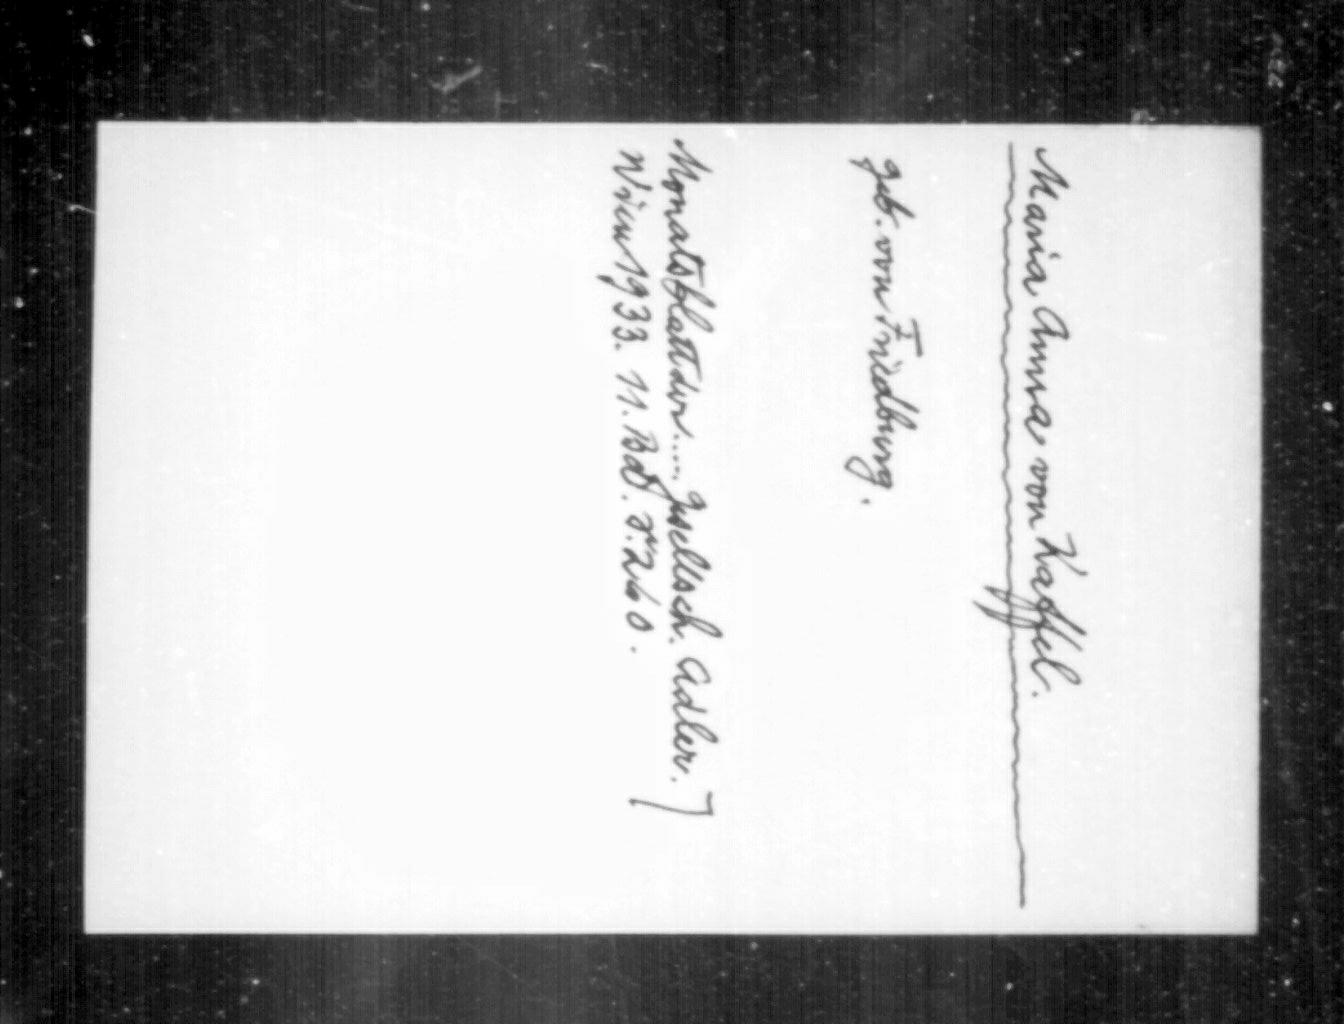 Maria Anna von Kaffel.
geb. von Friedburg.
Monatsblatt der.... Gesellsch. Adler. ]
Wien 1933. 11. Bd. S. 260.